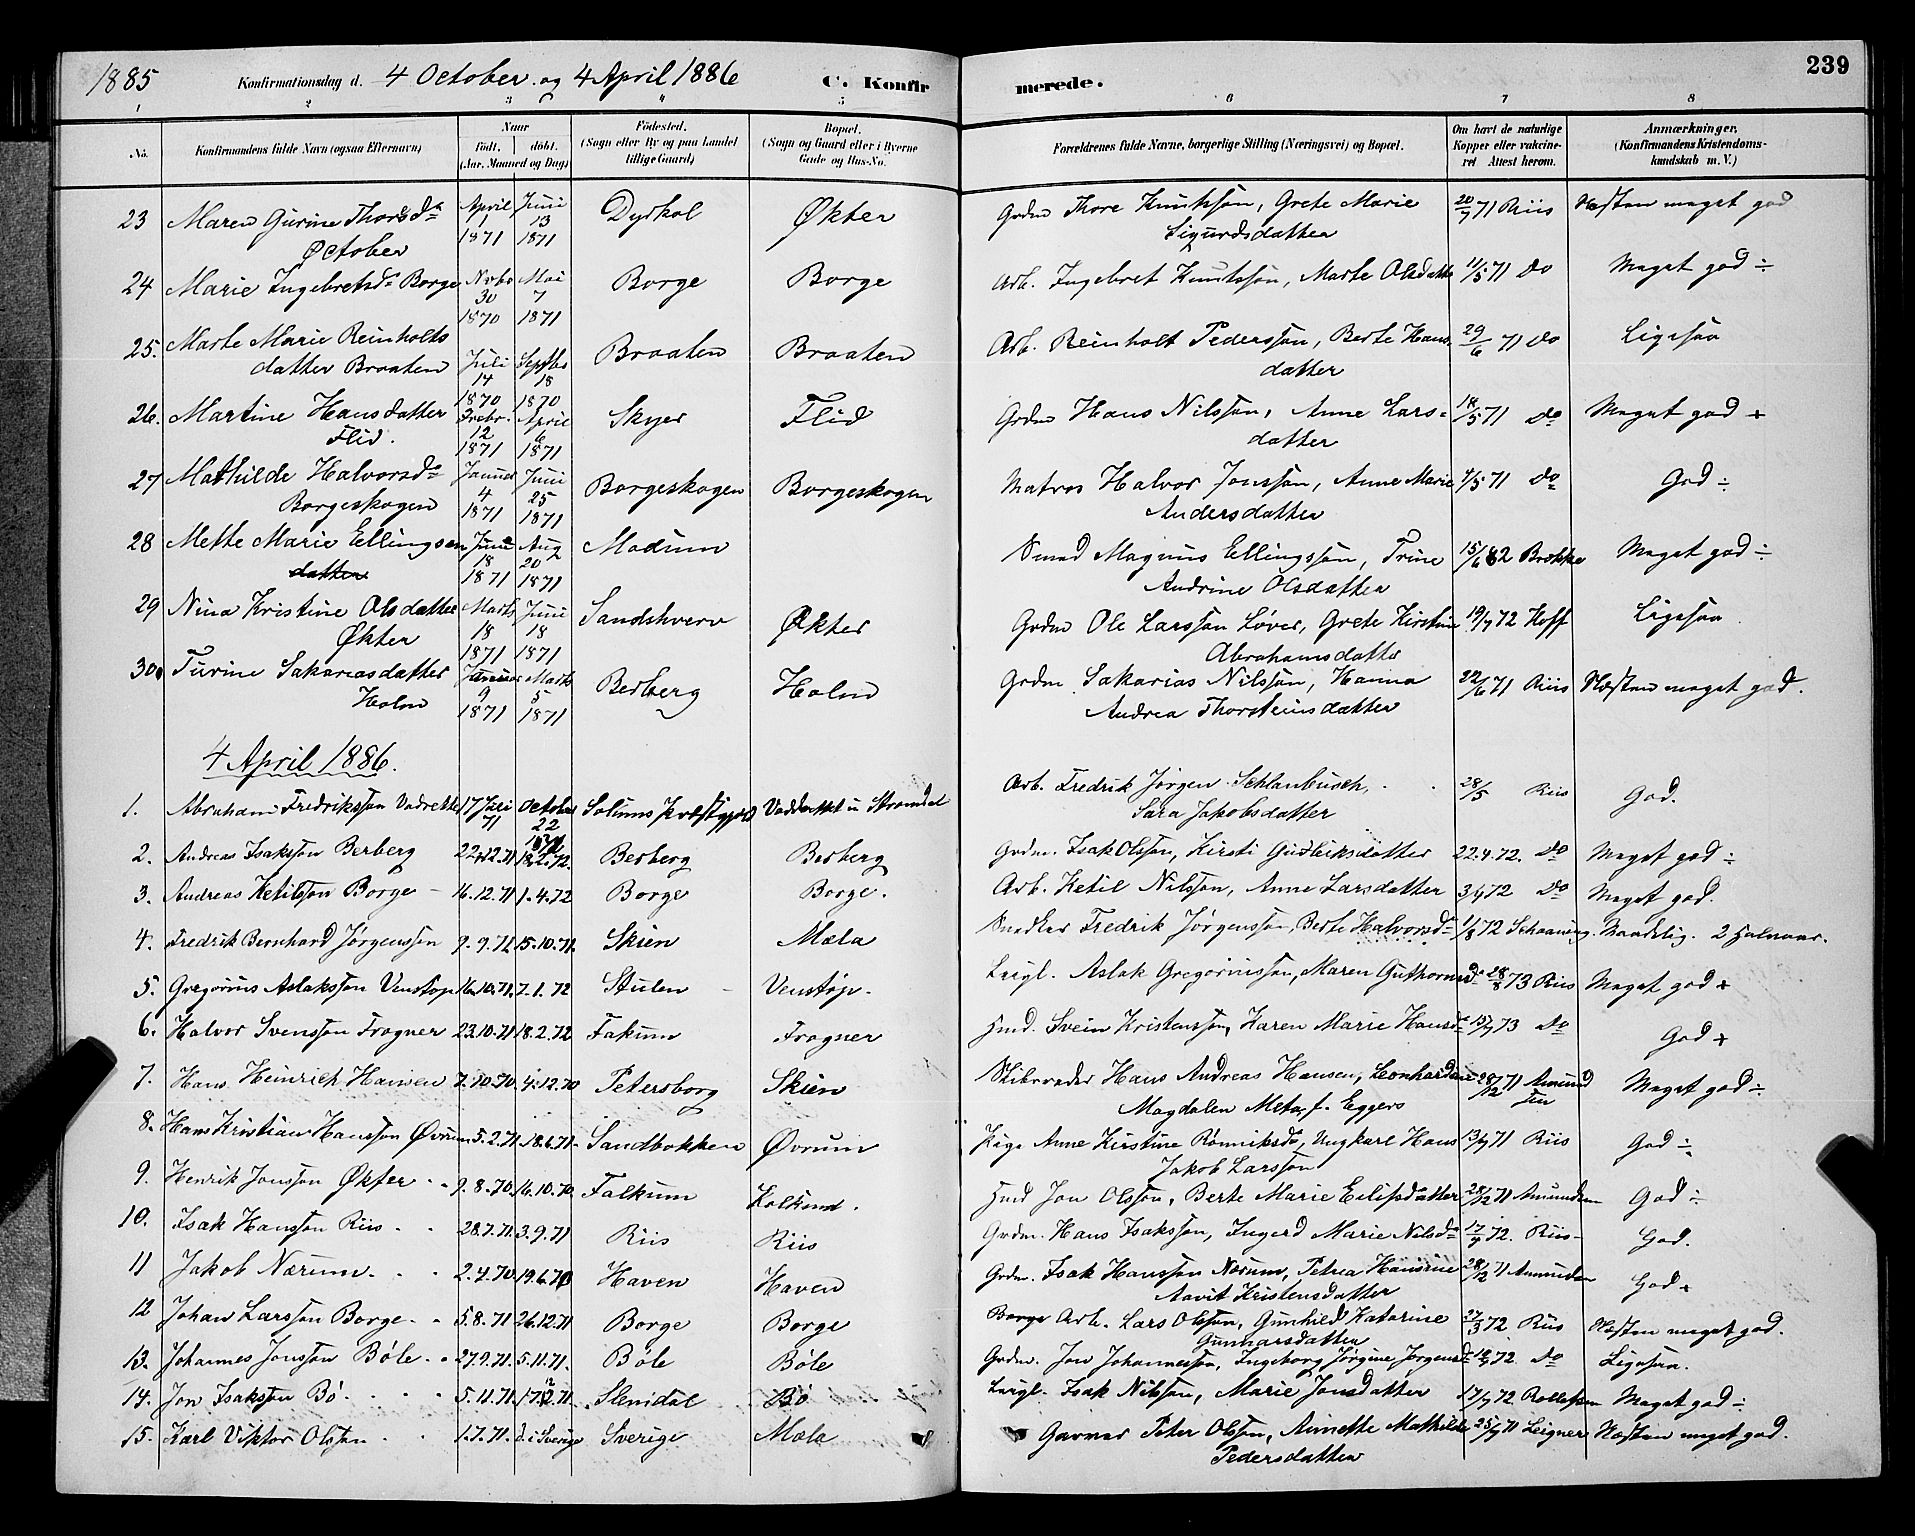 1885 Konfirmationsdag d. 4 October og 4 April 1886 C. Konfirmerede. 239
1 2 3 4 5 6 7 8
No. Konfirmandens fulde Navn (ogsaa Efternavn) Naar födt. döbt. (Aar, Maaned og Dag) Födested. (Sogn eller By og paa Landet tillige Gaard) Bopæl. (Sogn og Gaard eller i Byerne Gade og Hus-No. Forældrenes fulde Navne, borgerlige Stilling (Næringsvei) og Bopæl. Om havt de naturlige Kopper eller vakcineret Attest herom. Anmærkninger. (Konfirmandens Kristendomskundskab m. V.)
23 Maren Gurine Thorsd. April Juni Dyrkol Økter Grdm Thore Knutssøn, Grete Marie 20/7 71 Riis Næsten meget god
October 1 1871 13 1871 Sigurdsdatter
24 Marie Ingebretsd. Borge Novbr 30 1870 Mai 7 1871 Borge Borge Arb. Ingebret Knutssøn, Marte Olsdatter 11/5 71 Do Meget god ÷
25. Marte Marie Reinholts Arb. Reinholt Pederssøn, Berte Hans 29/6 71 Do Ligesaa
datter Braaten Juli 14 1870 Septbr 18 1870 Braaten Braaten datter
26. Martine Hansdatter Febr. 12 1871 April 6 1871 Skyer Flid Grdm Hans Nilssøn, Anne Lars= 18/5 71 Do Meget god +
Flid. datter
27 Mathilde Halvorsd. Januar 4 1871 Juni 25 1871 Borgeskogen Borgeskogen Matros Halvor Jonssøn, Anne Marie 4/5 71 Do God ÷
Borgeskogen Andersdatter
28 Mette Marie Ellingsen Juni 18 1871 Aug 20 1871 Modum Smed Magnus Ellingssøn, Trine 15/6 82 Brekke Meget god ÷
datter Andrine Olsdatter
29 Nina Kristine Olsdatter Marts 18 1871 Juni 18 1871 Sandshverv Økter Grdm Ole Larssøn Løver, Grete Kirstine 19/7 72 Hoff Ligesaa
Økter Abrahamsdatter
30. Turine Sakariasdatter Januar 9 1871 Marts 5 1871 Berberg Holm Grdm Sakarias Nilssøn, Hanna 22/6 71 Riis Næsten meget god.
Holm Andrea Thorsteinsdatter
4 April 1886.
1. Abraham Fredrikssøn Vadrette 17 Juli 71 October 22 Solums Præstegjeld Arb. Fredrik Jørgen Schlanbusch, 28/5 Riis God.
Sara Jakobsdatter
2. Andreas Isakssøn Berberg 22.12.71 18.2.72 Berberg Berberg Grdm. Isak Olssøn, Kirsti Gudleiksdatter 22.4.72. Do Meget god ÷
3. Andreas Ketilssøn Borge 16.12.71 1.4.72 Borge Borge. Arb. Ketil Nilssøn, Anne Larsdatter 3/7 72 Do Meget god.
4. Fredrik Bernhard Jørgenssøn 9.9.71 15.10.71. Skien Mæla Snedker Fredrik Jørgenssøn, Berte Halvorsd. 1/8 72 Schaaning. Maadelig. 2 Halvaar.
5. Gregorius Aslakssøn Venstøp 16.10.71. 7.1.72 Stulen Venstøp. Leigl. Aslak Gregoriussøn, Maren Guthormsd. 28/8 73 Riis Meget god +
6. Halvor Svenssøn Frogner 23.10.71 18.2.72 Fakum Frogner Hmd. Svein Kristenssøn, Karen Marie Hansd. 15/7 73 Do God +
7. Hans Heinrich Hansen 7.10.70. 4.12.70 Petersborg Skien Skibsreder Hans Andreas Hansen, Leonhardine 28/12 71 Amundsen Meget god ÷
Magdalen Meta, f. Eggers
8. Hans Kristian Hanssøn Øvrum 5.2.71. 18.6.71. Sandbokken Øvrum Pige Anne Kirstine Rønniksd., Ungkarl Hans 13/7 71 Riis God ÷
Jakob Larssøn
9. Henrik Jonssøn Økter 9.8.70. 16.10.70. Falkum Kolkind. Hmd Jon Olssøn, Berte Marie Eilifsdatter 28/12 71 Amundsen God ÷
10. Isak Hanssøn Riis 28.7.71. 3.9.71 Riis Riis Grdm. Hans Isakssøn, Ingerd Marie Nilsd. 17/7 72. Riis God.
11 Jakob Nærum 2.4.70. 19.6.70 Haven Haven Grdm. Isak Hanssøn Nærum, Petrea Hansine 28/12 71 Amundsen God +
Aavit Kristensdatter
12 Johan Larssøn Borge 5.8.71 26.12.71 Borge Borge Borge Arb. Lars Olssøn, Gunhild Katarine 27/3 72 Riis Næsten meget god.
Gunnarsdatter
13. Johannes Jonssøn Bøle 27.9.71. 5.11.71. Bøle Bøle Grdm. Jon Johannessøn, Ingeborg Jørgine Jørgensd. 18/7 72 Do Ligesaa.
14. Jon Isakssøn Bø 5.11.71. 17.12.71. Slemdal Bø Leigl. Isak Nilssøn, Marie Jonsdatter 17/7 72 Rollefsen Meget god ÷
15. Karl Viktor Olssøn 1.7.71. d. i Sverige Sverige Mæla Garver Peter Olssøn, Annette Mathilde 25/7 71 Leigner Næsten meget god.
Pedersdatter